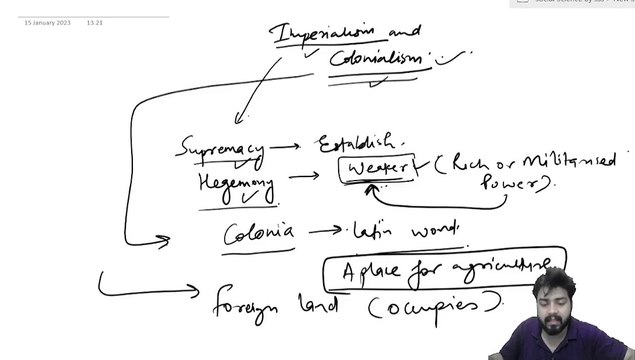 Social Science by sbs
15 January 2023 13:21
Imperialism and
Colonialism
Supremacy → Establish.
Hegemony → Weaker (Rich or Militarised
Power).
Colonia → Latin word.
A place for agriculture
foreign land (occupies).